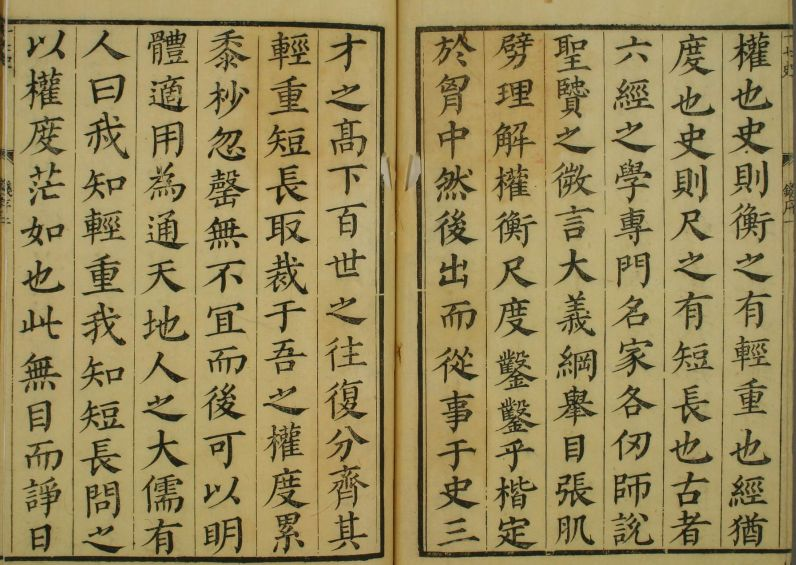 權也史則衡之有輕重也經猶
度也史則尺之有短長也古者
六經之學專門名家各仞師說
聖賢之微言大義綱舉目張肌
劈理解權衡尺度鑿鑿乎楷定
於胷中然後出而從事于史三
才之高下百世之往復分齊其
輕重短長取裁于吾之權度累
黍杪忽罄無不冝而後可以明
體適用為通天地人之大儒有
人曰我知輕重我知短長問之
以權度茫如也此無目而諍日